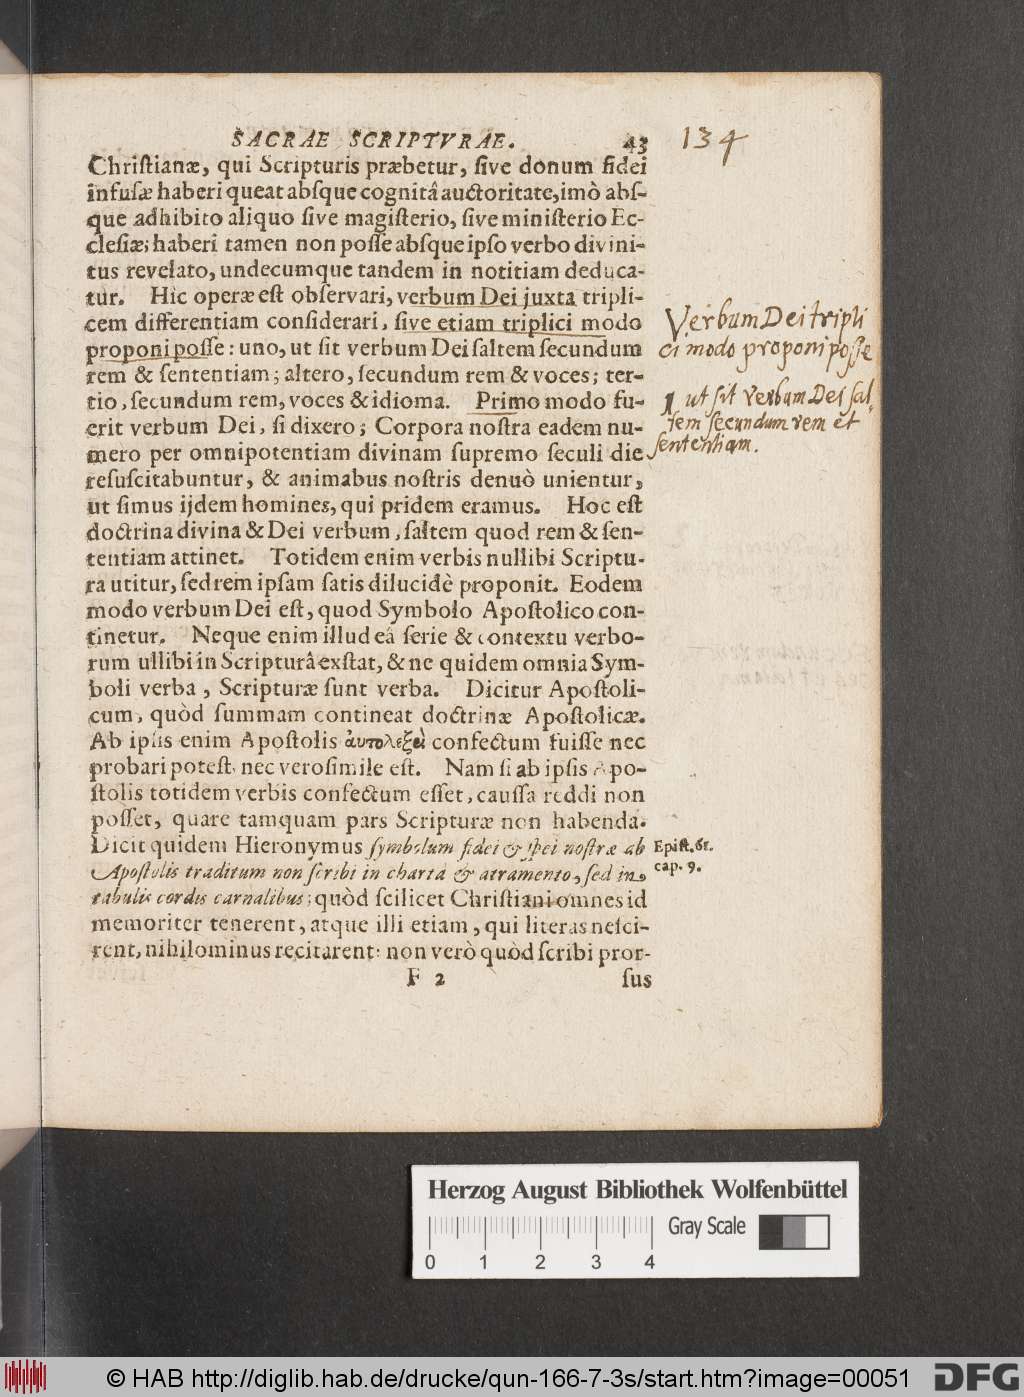 SACRAE SCRIPTVRAE. 43
134
Christianæ, qui Scripturis præbetur, sive donum fidei
infusæ haberi queat absque cognitâ auctoritate, imò abs-
que adhibito aliquo sive magisterio, sive ministerio Ec-
clesiæ; haberi tamen non posse absque ipso verbo divini-
tus revelato, undecumque tandem in notitiam deduca-
tur. Hic operæ est observari, verbum Dei juxta tripli-
cem differentiam considerari, sive etiam triplici modo
proponi posse: uno, ut sit verbum Dei saltem secundum
rem & sententiam; altero, secundum rem & voces; ter-
tio, secundum rem, voces & idioma. Primo modo fu-
erit verbum Dei, si dixero; Corpora nostra eadem nu-
mero per omnipotentiam divinam supremo seculi die
resuscitabuntur, & animabus nostris denuò unientur,
ut simus ijdem homines, qui pridem eramus. Hoc est
doctrina divina & Dei verbum, saltem quod rem & sen-
tentiam attinet. Totidem enim verbis nullibi Scriptu-
ra utitur, sed rem ipsam satis dilucidè proponit. Eodem
modo verbum Dei est, quod Symbolo Apostolico con-
tinetur. Neque enim illud eâ serie & contextu verbo-
rum ullibi in Scripturâ exstat, & ne quidem omnia Sym-
boli verba, Scripturæ sunt verba. Dicitur Apostoli-
cum, quòd summam contineat doctrinæ Apostolicæ.
Ab ipsis enim Apostolis ἀυτολεξεὶ confectum fuisse nec
probari potest, nec verosimile est. Nam si ab ipsis Apo-
stolis totidem verbis confectum esset, caussa reddi non
posset, quare tamquam pars Scripturæ non habenda.
Dicit quidem Hieronymus symbolum fidei & spei nostræ ab
Apostolis traditum non scribi in chartâ & atramento, sed in
tabulis cordis carnalibus; quòd scilicet Christiani omnes id
memoriter tenerent, atque illi etiam, qui literas nesci-
rent, nihilominus recitarent: non verò quòd scribi pror-
F 2 sus
Verbum Dei tripli
ci modo proponi posse
1 ut sit verbum Dei sal-
tem secundum rem et
sententiam.
Epist. 61.
cap. 9.
Herzog August Bibliothek Wolfenbüttel
Gray Scale
0 1 2 3 4
© HAB http://diglib.hab.de/drucke/qun-166-7-3s/start.htm?image=00051
DFG